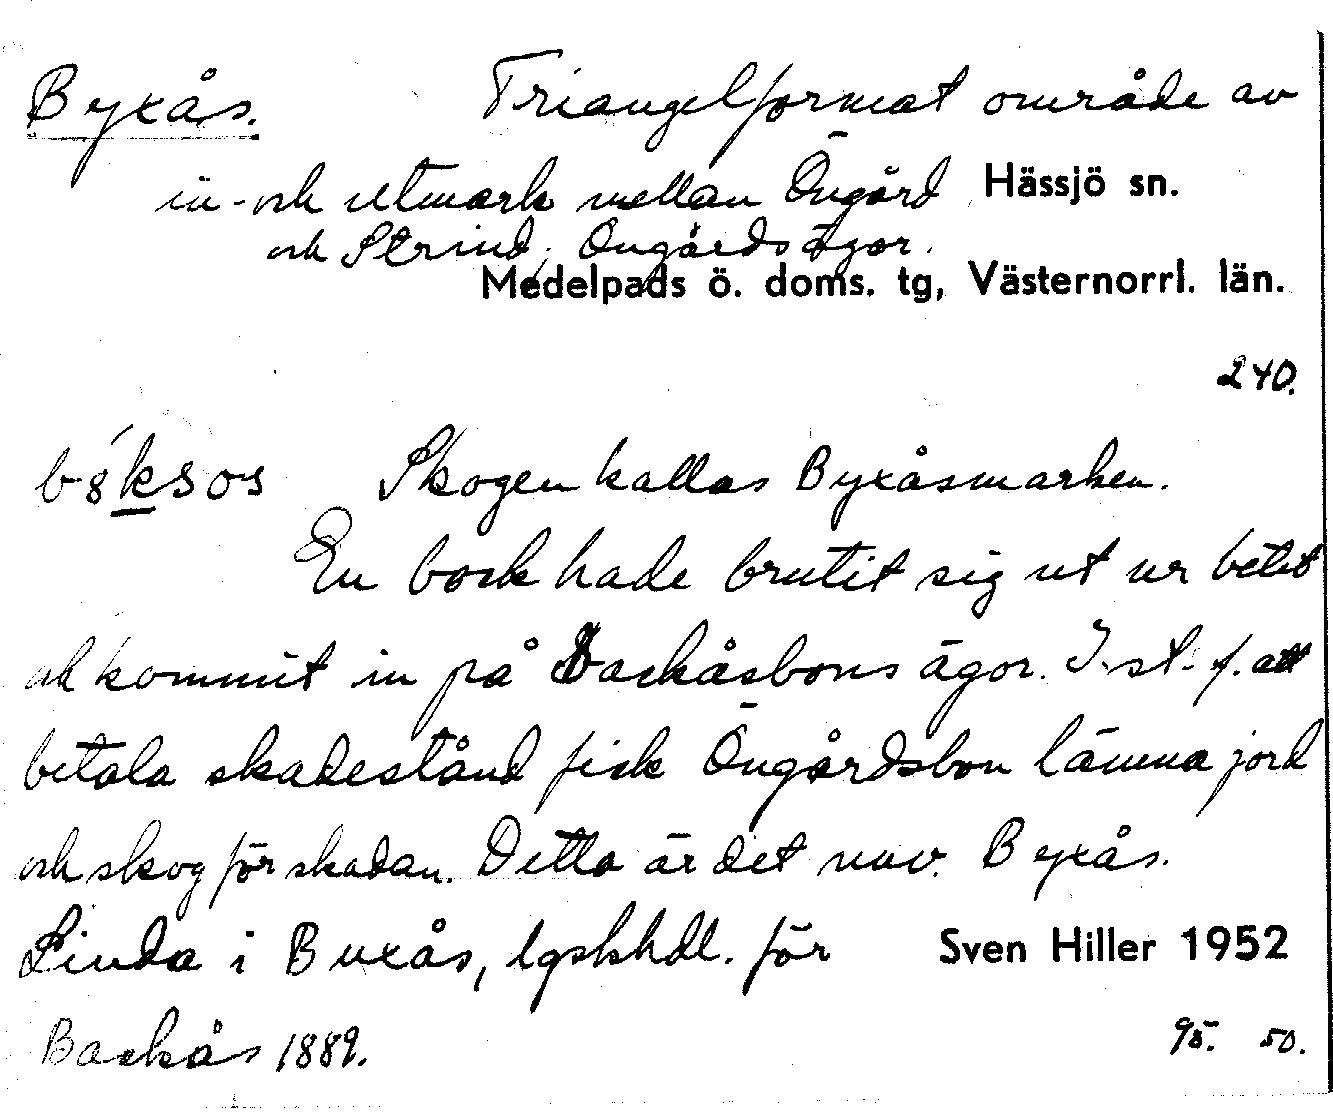 Byxås. Triangelformat område av
in- och utmark mellan Öngård Hässjö sn.
och Strind, Öngårds ägor.
Medelpads ö. doms. tg, Västernorrl. län.
240.
Skogen kallas Byxåsmarken.
En bock hade brutit sig ut ur betet
och kommit in på Backåsbons ägor. I st. f. att
betala skadestånd fick Öngårdsbon lämna jord
och skog för skadan. Detta är det nuv. Byxås.
Linda i Buxås, lgskhdl. för Sven Hiller 1952
Backås 1889. 95. 50.